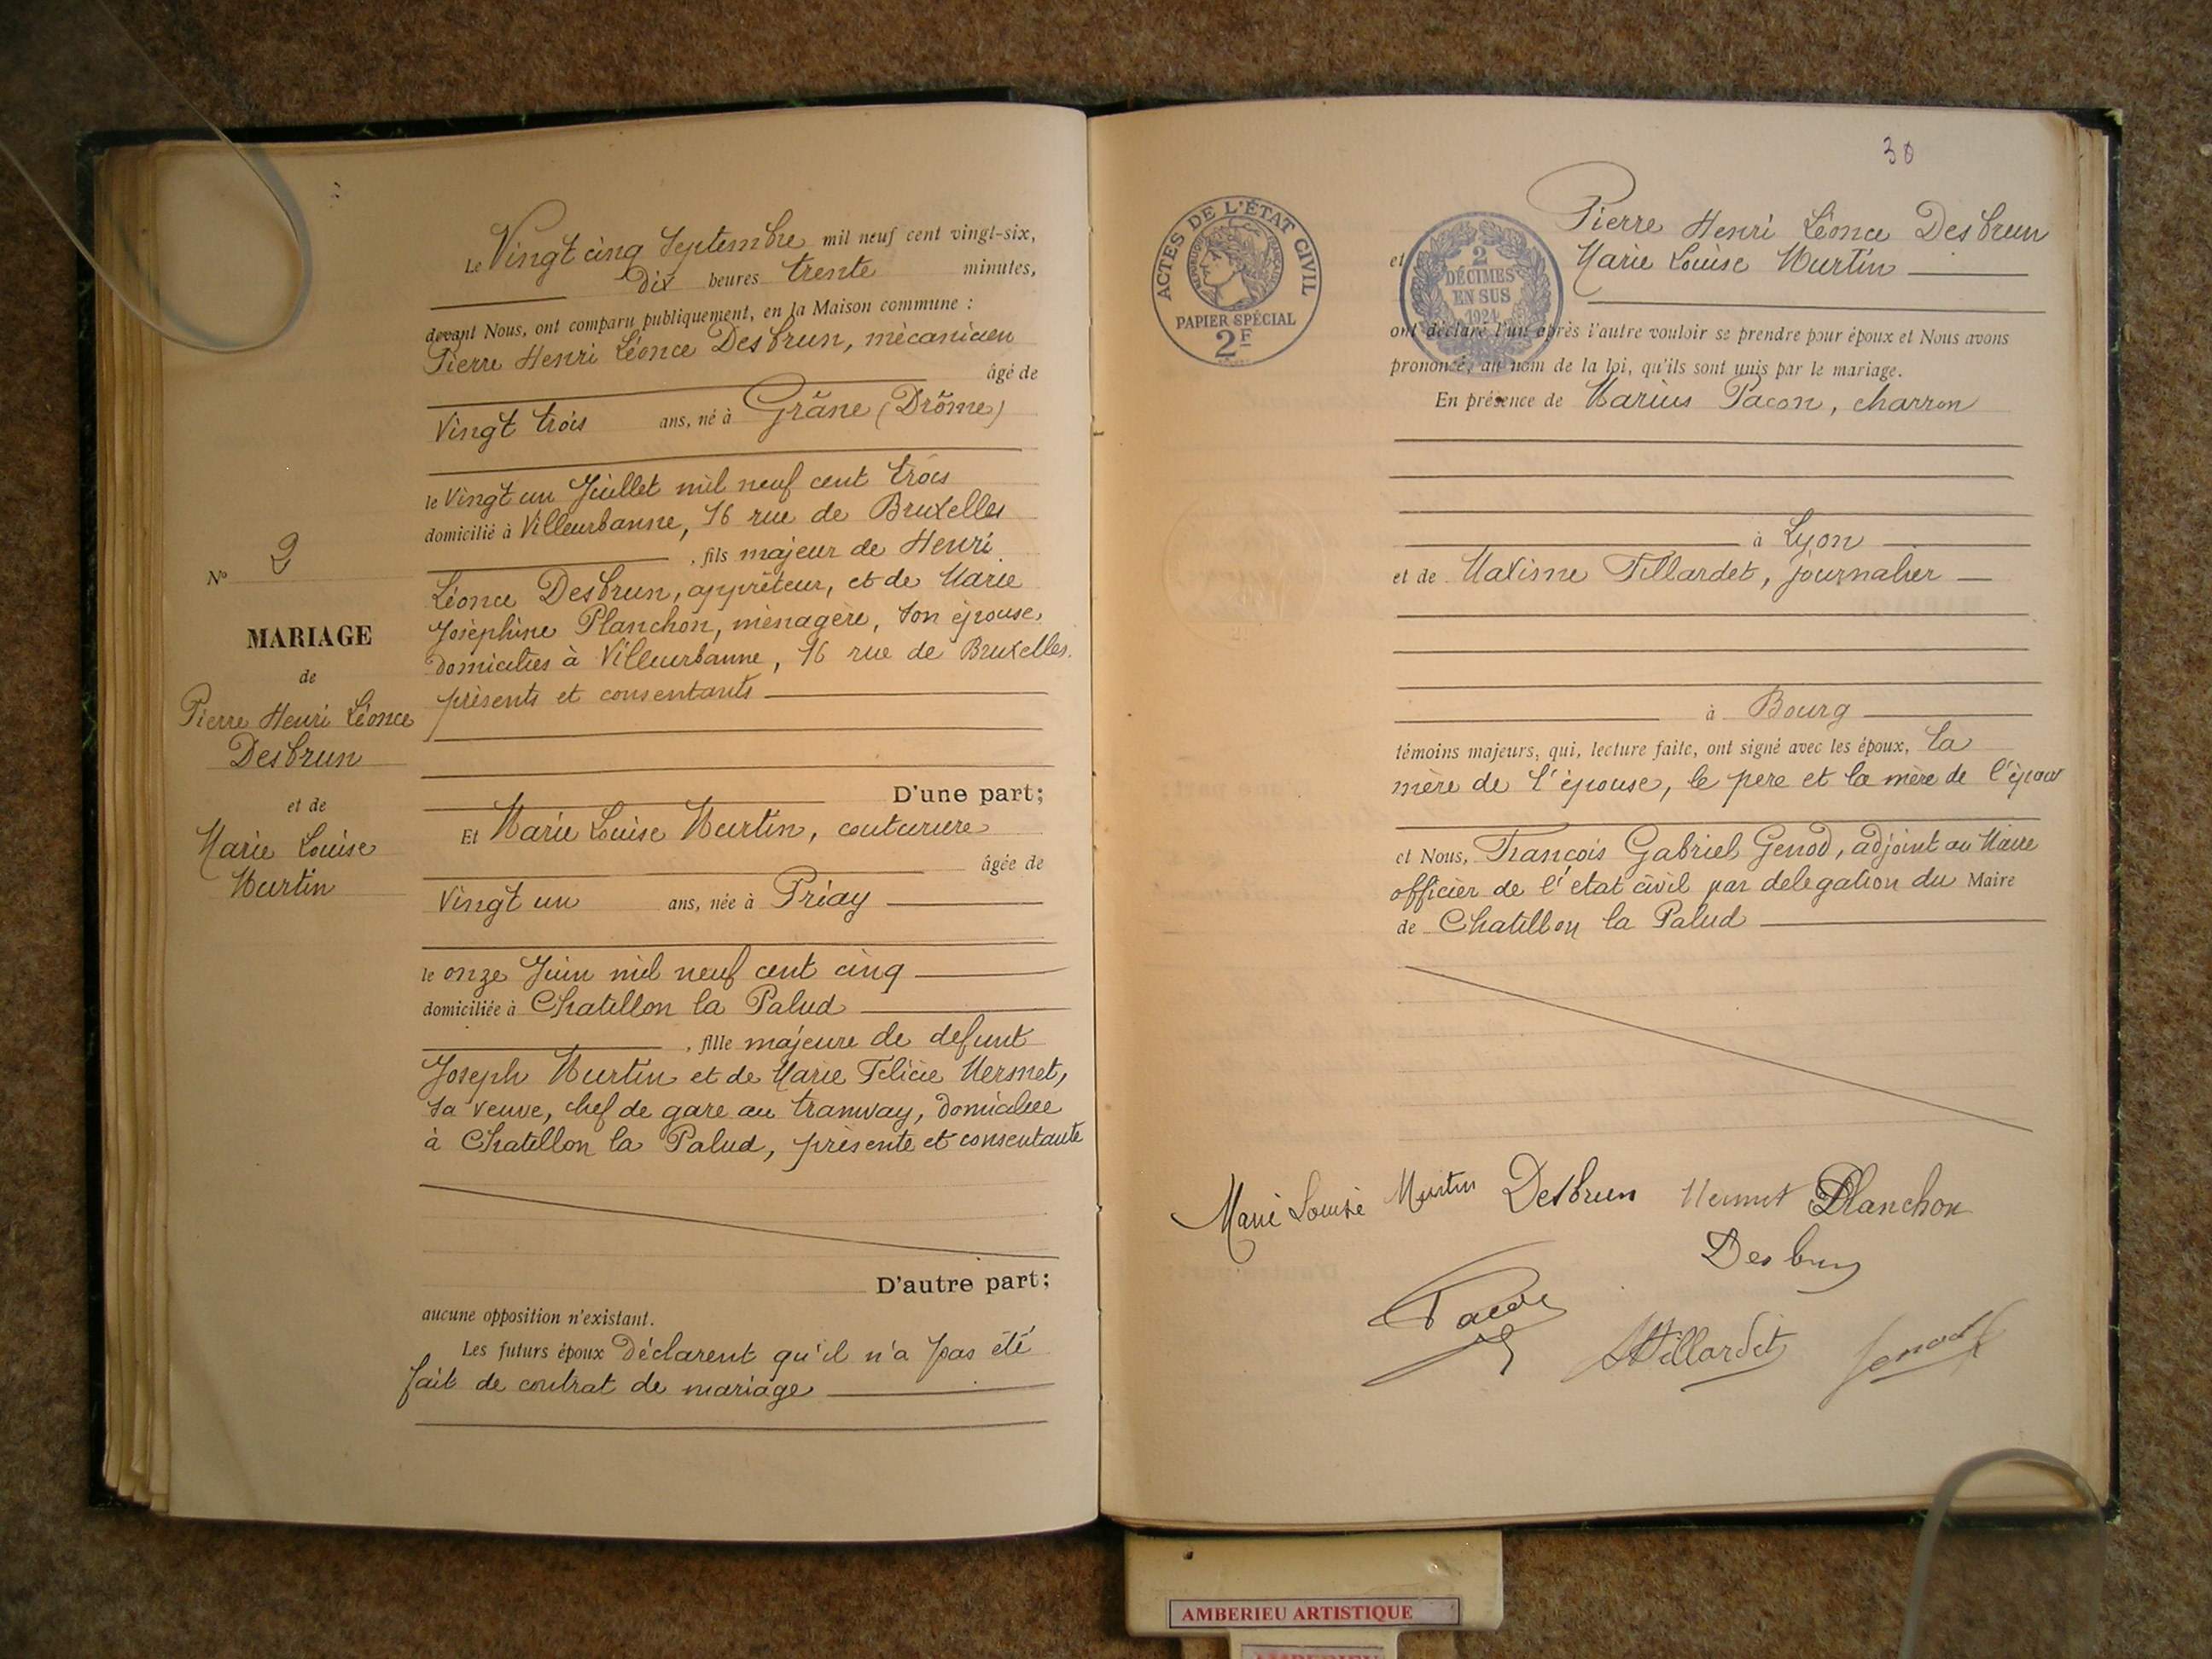 Le Vingt cinq Septembre mil neuf cent vingt-six,
Dix heures trente minutes,
devant Nous, ont comparu publiquement, en la Maison commune :
Pierre Henri Léonce Desbrun, mécanicien
âgé de
Vingt trois ans, né à Grâne (Drôme)
le Vingt un Juillet mil neuf cent trois
domicilié à Villeurbanne, 16 rue de Bruxelles
, fils majeur de Henri
Léonce Desbrun, apprêteur, et de Marie
Joséphine Planchon, ménagère, son épouse,
domiciliés à Villeurbanne, 16 rue de Bruxelles.
présents et consentants
D'une part;
Et Marie Louise Murtin, couturière
âgée de
Vingt un ans, née à Priay
le onze Juin mil neuf cent cinq
domiciliée à Chatillon la Palud
, fille majeure de defunt
Joseph Murtin et de Marie Felicie Mermet,
sa veuve, chef de gare au tramway, domiciliée
à Chatillon la Palud, présente et consentante
D'autre part;
aucune opposition n'existant.
Les futurs époux Déclarent qu'il n'a pas été
fait de contrat de mariage
No 2
MARIAGE
de
Pierre Henri Léonce
Desbrun
et de
Marie Louise
Murtin
30
ACTES DE L'ÉTAT CIVIL
PAPIER SPÉCIAL
2F
2
DÉCIMES
EN SUS
1924
Pierre Henri Léonce Desbrun
et Marie Louise Murtin
ont déclaré l'un après l'autre vouloir se prendre pour époux et Nous avons
prononcé, au nom de la loi, qu'ils sont unis par le mariage.
En présence de Marius Pacon, charron
à Lyon
et de Maxime Tillardet, journalier
à Bourg
témoins majeurs, qui, lecture faite, ont signé avec les époux, la
mère de l'épouse, le père et la mère de l'époux
et Nous, François Gabriel Genod, adjoint au Maire
officier de l'état civil par delegation du Maire
de Chatillon la Palud
Marie Louise Murtin Desbrun Mermet Planchon
Desbrun
Pacon
Tillardet Genod
AMBERIEU ARTISTIQUE
AMBERIEU